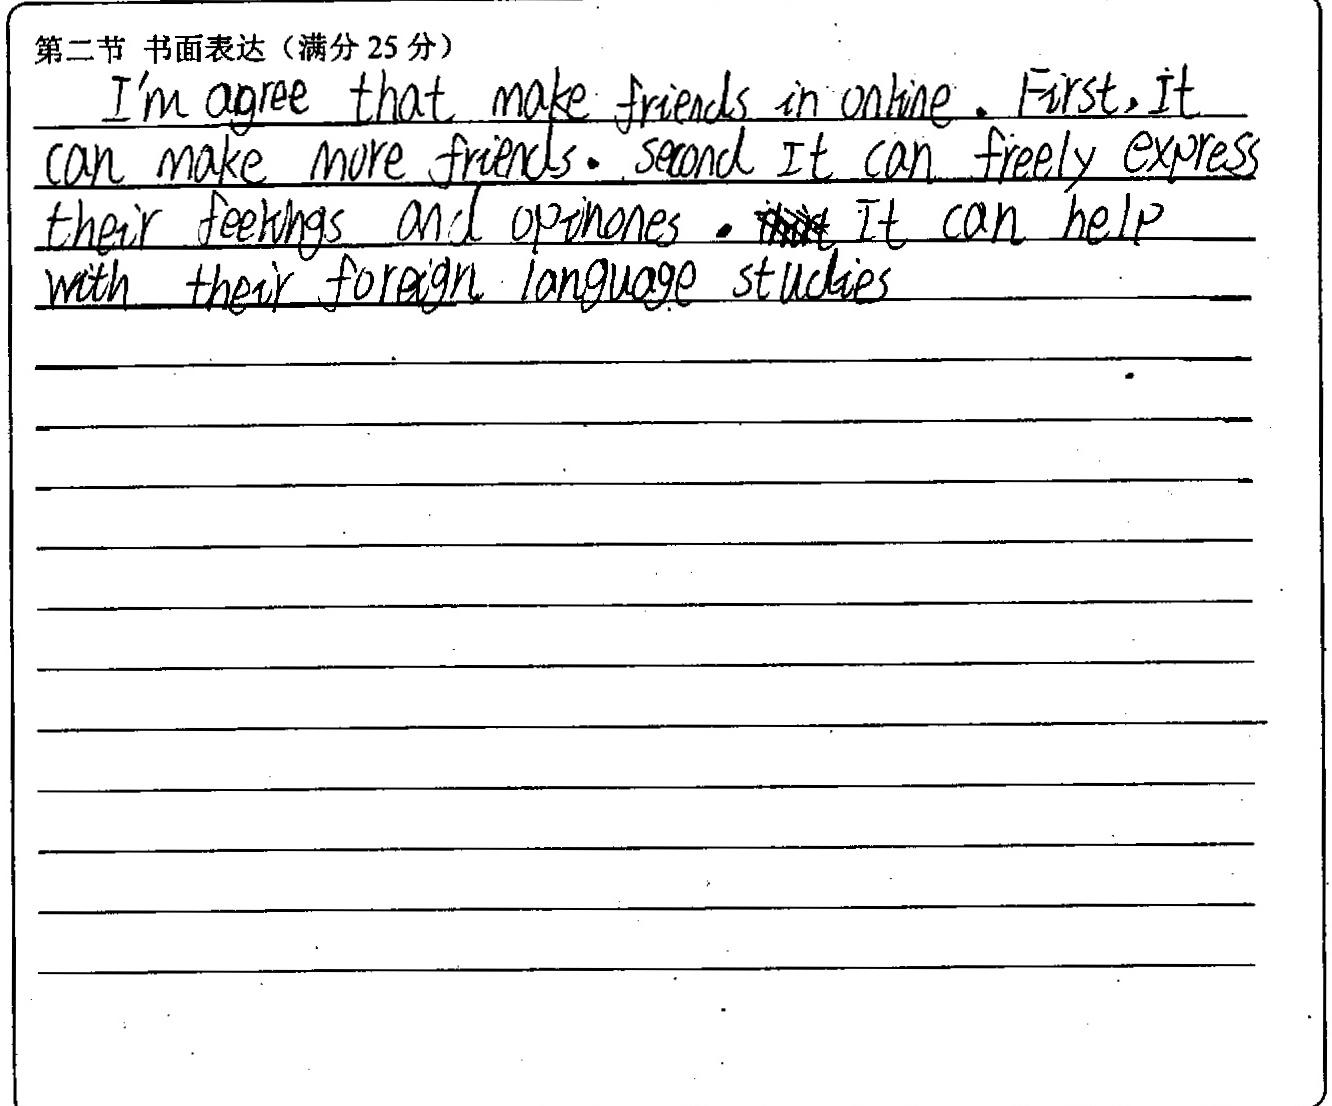 第二节 书面表达（满分 25 分）
I'm agree that make friends in online. First, It
can make more friends. second It can freely express
their feelings and opinones. It can help
with their foreign language studies